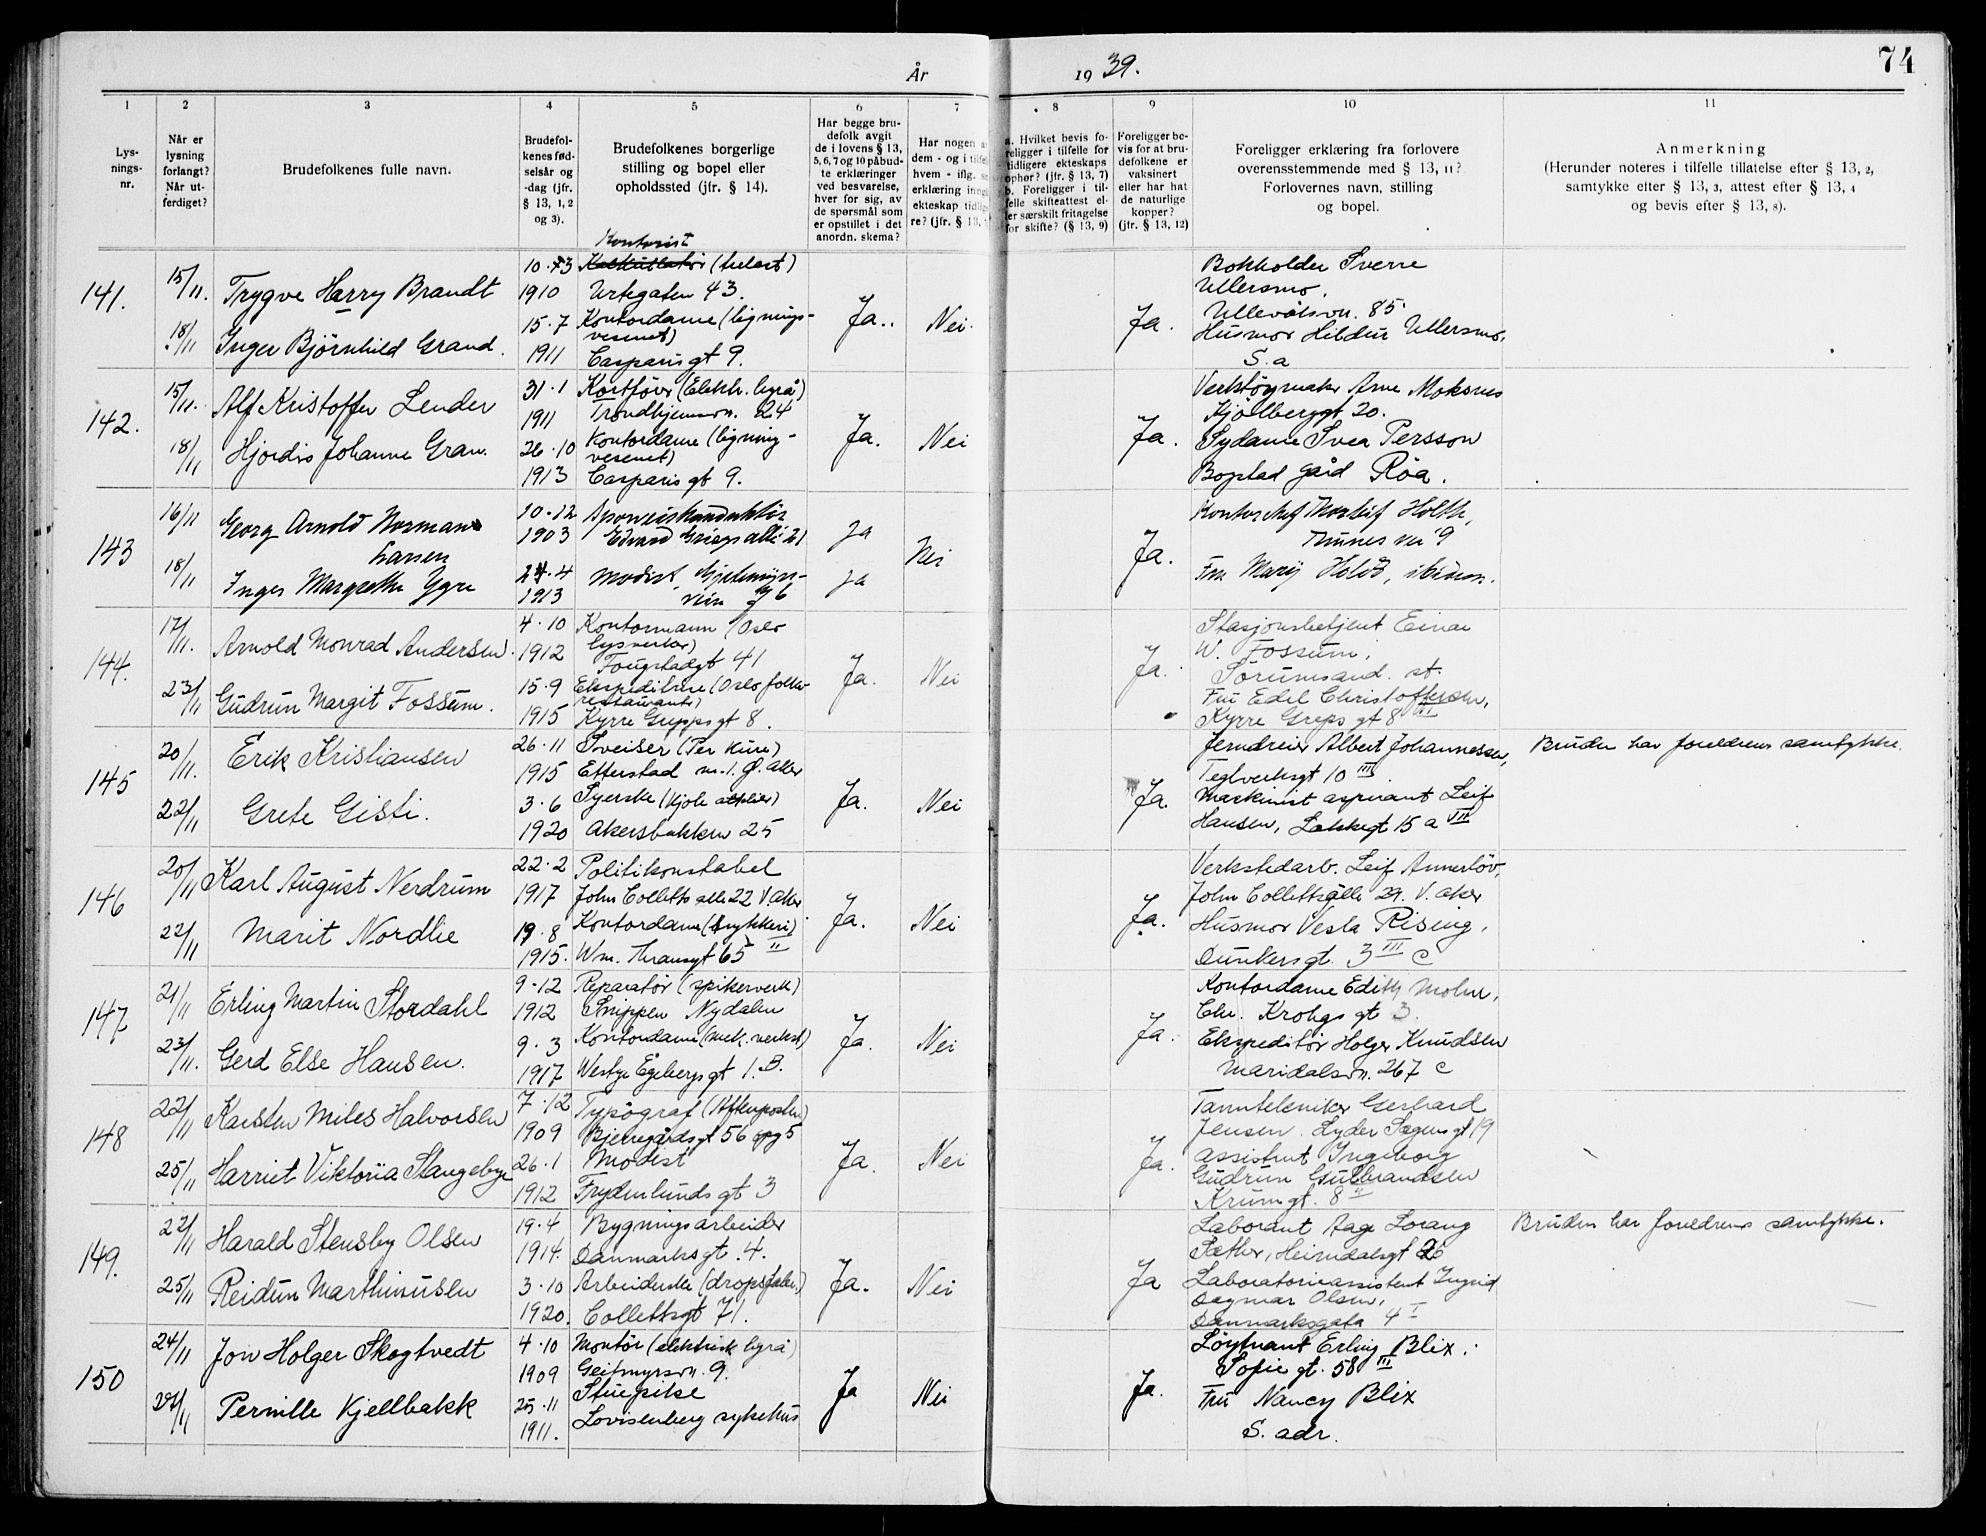 År 1939.
74
1 2 3 4 5 6 7 8 9 10 11
Lys-
nings-
nr.
Når er
lysning
forlangt?
Når ut-
ferdiget?
Brudefolkenes fulle navn.
Brudefol-
kenes fød-
selsår og
-dag (jfr.
§ 13, 1, 2
og 3).
Brudefolkenes borgerlige
stilling og bopel eller
opholdssted (jfr. § 14).
Har begge bru-
defolk avgit
de i lovens § 13,
5, 6, 7 og 10 påbud-
te erklæringer
ved besvarelse,
hver for sig, av
de spørsmål som
er opstillet i det
anordn. skema?
Har nogen a
dem - og i tilfe
hvem - iflg.
erklæring inng
ekteskap tidlig
re? (jfr. § 13,
a. Hvilket bevis fo-
religger i tilfelle for
tidligere ekteskaps
ophør? (§ 13, 7)
b. Foreligger i til-
felle skifteattest el-
ler særskilt fritagelse
for skifte? (§ 13, 9)
Foreligger be-
vis for at bru-
defolkene er
vaksinert
eller har hat
de naturlige
kopper?
(jfr. § 13, 12)
Foreligger erklæring fra forlovere
overensstemmende med § 13, 11?
Forlovernes navn, stilling
og bopel.
Anmerkning
(Herunder noteres i tilfelle tillatelse efter § 13, 2,
samtykke efter § 13, 3, attest efter § 13, 4
og bevis efter § 13, 8).
141.
15/11.
Trygve Harry Brandt
10.3
1910
Kontorist
(helart)
Urtegaten 43.
18/11
Inger Bjørnhild Grand.
15.7
1911
Kontordame (lignings-
vesenet)
Casparis gt 9.
Ja. Nei. Ja.
Bokholder Sverre
Ullersmo.
Ullevålsvn. 85
Husmor Hildur Ullersmo.
S. a
142.
15/11.
Alf Kristoffer Lender
31.1
1911
(Elektr. byrå)
Trondhjemsvn. 24
18/11
Hjordis Johanne Gran.
26.10
1913
Kontordame (ligning-
vesenet)
Casparis gt 9.
Ja. Nei Ja.
Verktøymaker Arne Moksnes
Kjølberggt 20.
Sydame Svea Persson
Bogstad gård Røa.
143
16/11
Georg Arnold Norman
Larsen
10.12
1903
Sporveiskonduktør
Edvard Griegs alle 21
18/11
Inger Margrethe Ygre
24.4
1913
Modist,
vein 6
Ja
Ja
Nei
Ja.
Kontorchef Holth,
Thunes vei 9
Fru Holth, ibidem.
144.
17/11.
Arnold Monrad Andersen.
4.10
1912
Kontormann (Oslo
lysverker)
Fougstadgt 41
23/11
Gudrun Margit Fossum.
15.9
1915
Ekspeditrise (Oslo folke-
restauranter)
Kyrre Greppsgt 8.
Ja. Nei Ja.
Stasjonsbetjent Einar
W. Fossum,
Sørumsand. st.
Fru Edel Christoffersen,
Kyrre Greps gt 8 III
145
20/11.
Erik Kristiansen
26.11
1915
Sveiser (Per Kure)
Etterstad m.1. Ø. Aker
22/11
Grete Gisti.
3.6
1920
Syerske (Kjole atelier)
Akersbakken 25
Ja. Nei Ja.
Jerndreier Albert Johannessen,
Teglverksgt 10 III
Maskinist aspirant Leif
Hansen, Lakkegt 15 a VII
Bruden har foreldrenes samtykke.
146
20/11
Karl August Nerdrum
22.2
1917
Politikonstabel
John Colletts alle 22 V. Aker
22/11
Marit Nordlie
19.8
1915.
Kontordame (trykkeri)
Wm. Thranesgt 65 II
Ja. Nei Ja.
Verkstedarb. Leif Annerløv,
John Colletts alle 29. V. Aker
Husmor Vesla Rising,
Dunkersgt. 3 III C
147
21/11
Erling Martin Stordahl
9.12
1912
Reparatør (spikerverk)
Snippen Nydalen
23/11.
Gerd Else Hansen.
9.3
1917
Kontordame (mek. verkst)
Westye Egebergs gt 1. B.
Ja. Nei Ja.
Kontordame Edith Mohn,
Chr. Krohgs gt 3.
Ekspeditør Holger Knudsen
Maridalsvn. 267 c
148
22/11
Karsten Miles Halvorsen
7.12
1909
Typograf (Aftenposten)
Bjerregårdsgt 56 opg 5
25/11
Harriet Viktoria Stangebye
26.1
1912
Modist
Frydenlunds gt 3
Ja. Nei Ja.
Tanntekniker Gerhard
Jensen. Lyder Sagens gt 19
Assistent Ingeborg
Gudrun Gulbrandsen
Krumgt. 8 II
149.
22/11
Harald Stensby Olsen
19.4
1914.
Bygningsarbeider
Danmarksgt. 4.
25/11
Reidun Marthinusen
3.10
1920.
Arbeiderske (dropsfabr.)
Collettsgt 71.
Ja. Nei Ja
Laborant Aage Lorang
Sæther, Heimdalsgt 26
Laboratorieassistent Ingrid
Dagmar Olsen,
Danmarksgata 4 I
Bruden har foreldrenes samtykke.
150
24/11
Jon Holger Skogtvedt
4.10
1909
Montør (elektrisk byrå)
Geitmyrsvn. 9.
27/11
Pernille Kjellbakk
25.11
1911.
Stuepike
Lovisenberg sykehus
Ja Nei Ja.
Løytnant Erling Blix.
Sofie gt. 58 III
Fru Nancy Blix
S. adr.